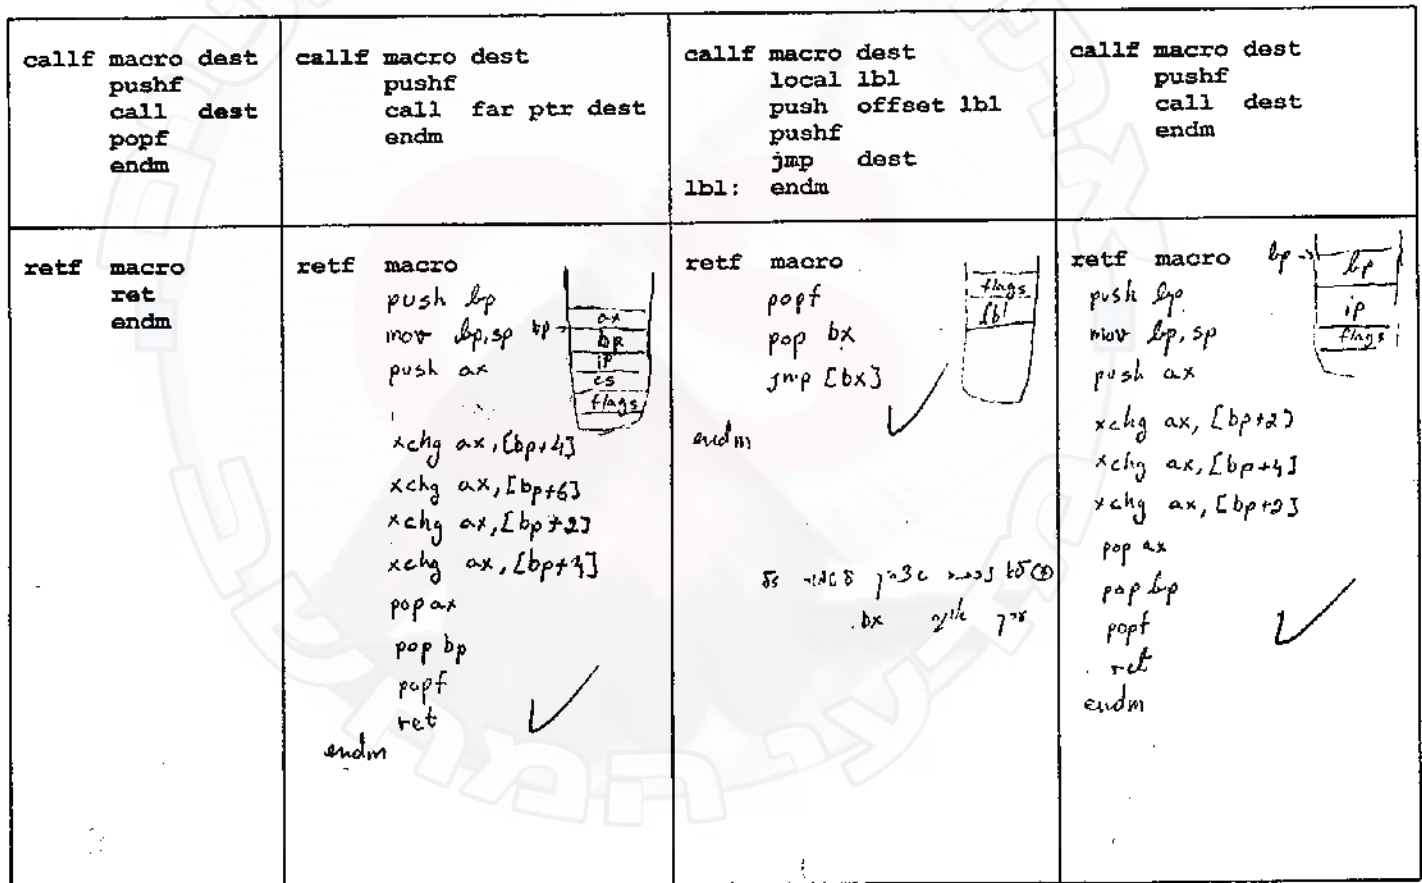 callf macro dest
pushf
call dest
popf
endm
callf macro dest
pushf
call far ptr dest
endm
callf macro dest
local lbl
push offset lbl
pushf
jmp dest
lbl: endm
callf macro dest
pushf
call dest
endm
retf macro
ret
endm
retf macro
push bp
mov bp,sp
push ax
xchg ax,[bp+4]
xchg ax,[bp+6]
xchg ax,[bp+2]
xchg ax,[bp+4]
pop ax
pop bp
popf
ret
endm
bp
ax
bp
ip
cs
flags
retf macro
popf
pop bx
jmp [bx]
endm
flags
lbl
bx
retf macro
push bp
mov bp, sp
push ax
xchg ax, [bp+2]
xchg ax, [bp+4]
xchg ax, [bp+2]
pop ax
pop bp
popf
ret
endm
bp
bp
ip
flags